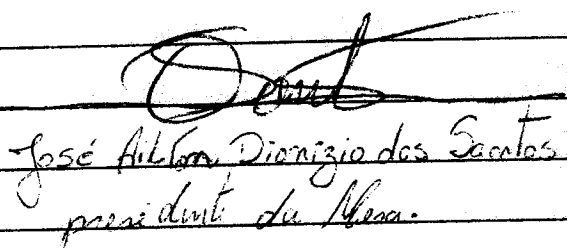 José Ailton Dionizio dos Santos
presidente da Mesa.